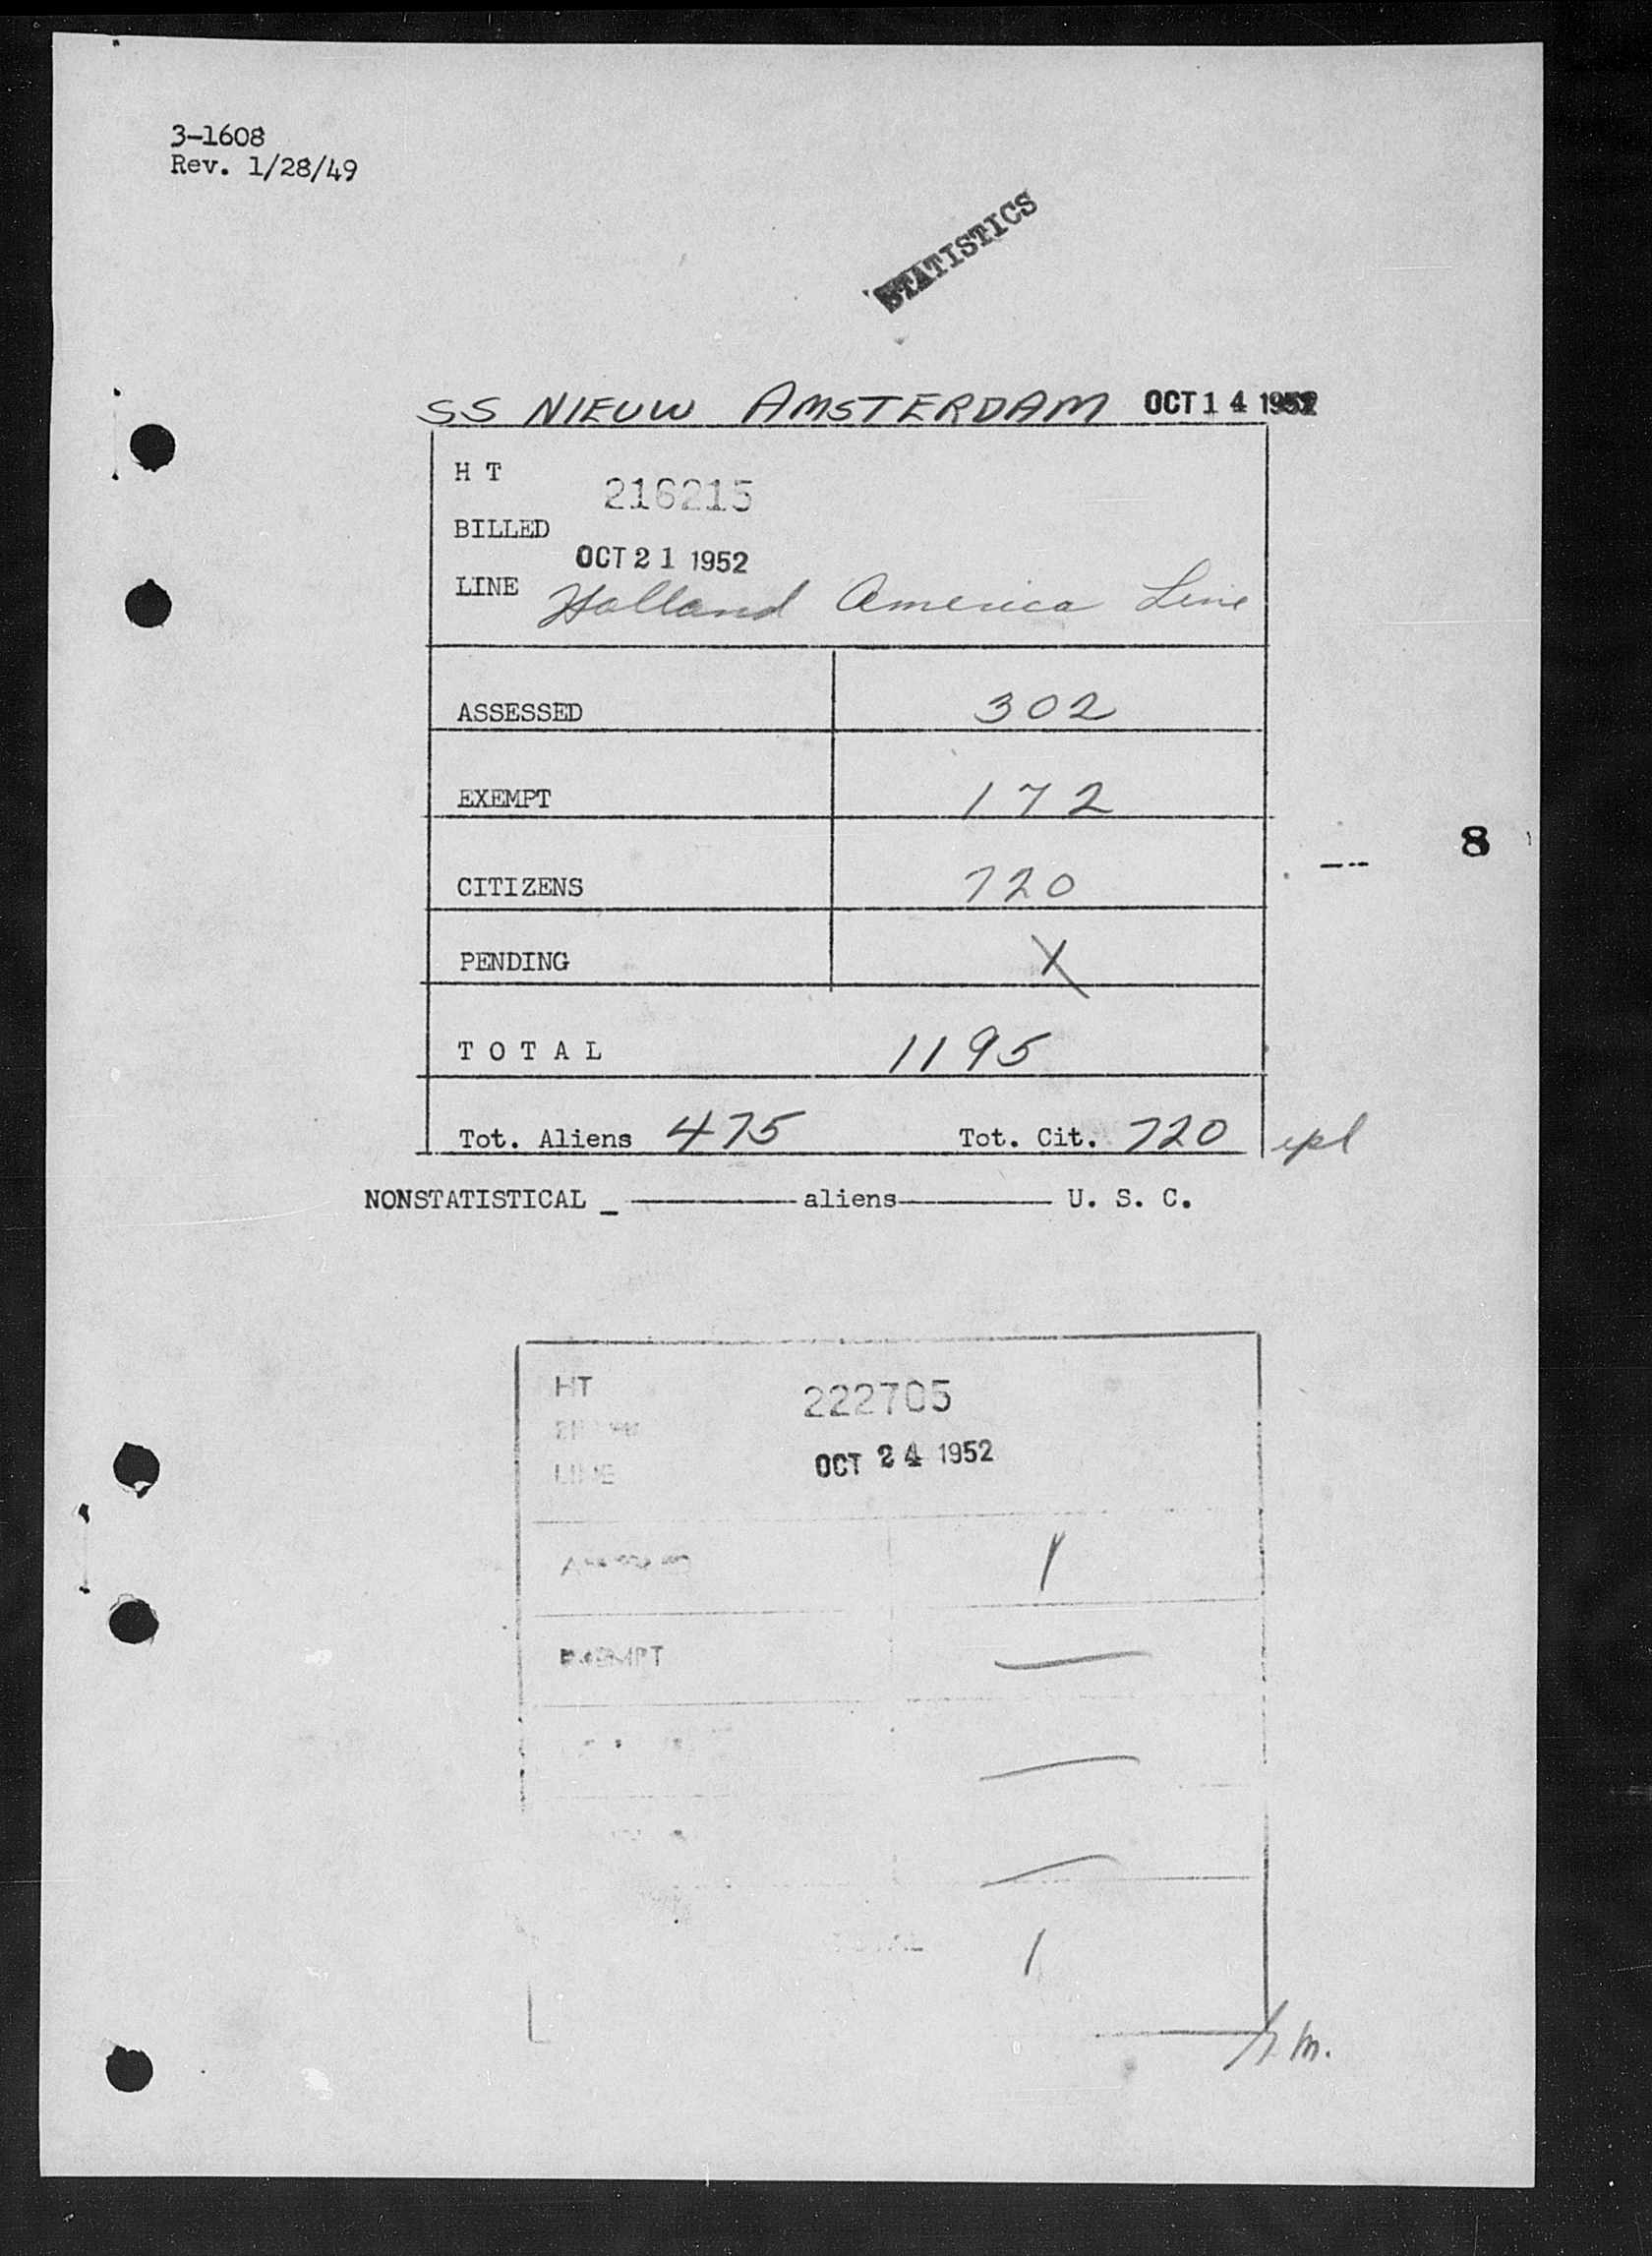 3-1608
Rev. 1/28/49
STATISTICS
SS NIEUW AMSTERDAM OCT 14 1952
H T
216215
BILLED
OCT 21 1952
LINE Holland America Line
ASSESSED 302
EXEMPT 172
8
CITIZENS 720
PENDING X
T O T A L 1195
Tot. Aliens 475 Tot. Cit. 720 epl
NONSTATISTICAL _ aliens U. S. C.
HT 222705
OCT 24 1952
LINE
1
EXEMPT —
—
—
TOTAL 1